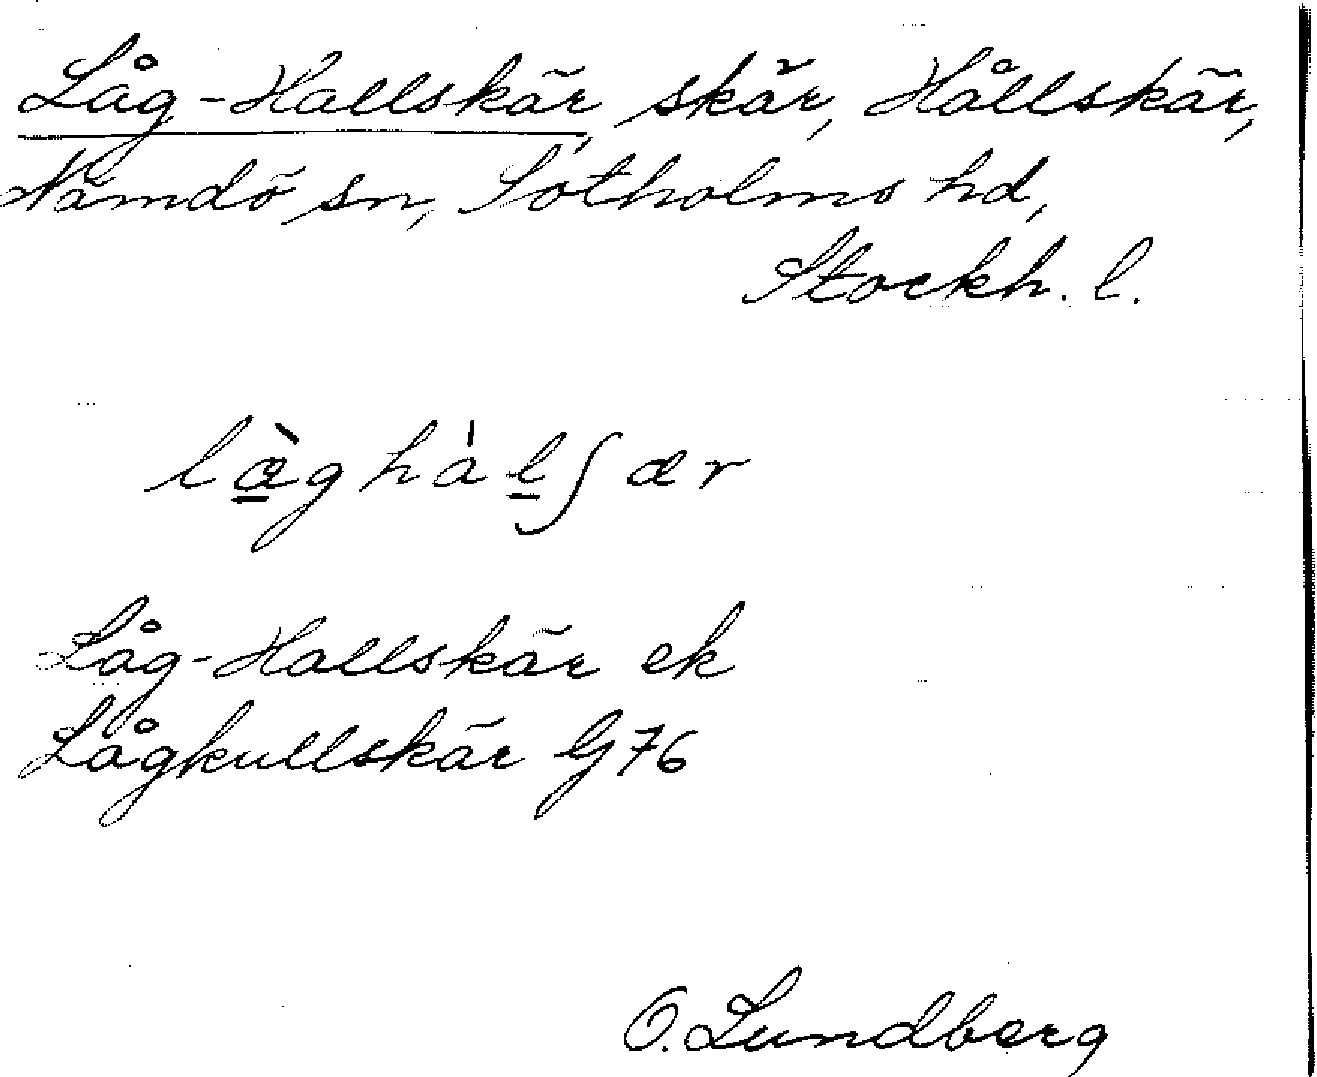 Låg-Hallskär, skär, Hållskär,
Nämdö sn, Sotholms hd,
Stockh. l.
læ̱̀ghàḻʃær
Låg-Hallskär ek
Lågkullskär G76
O. Lundberg